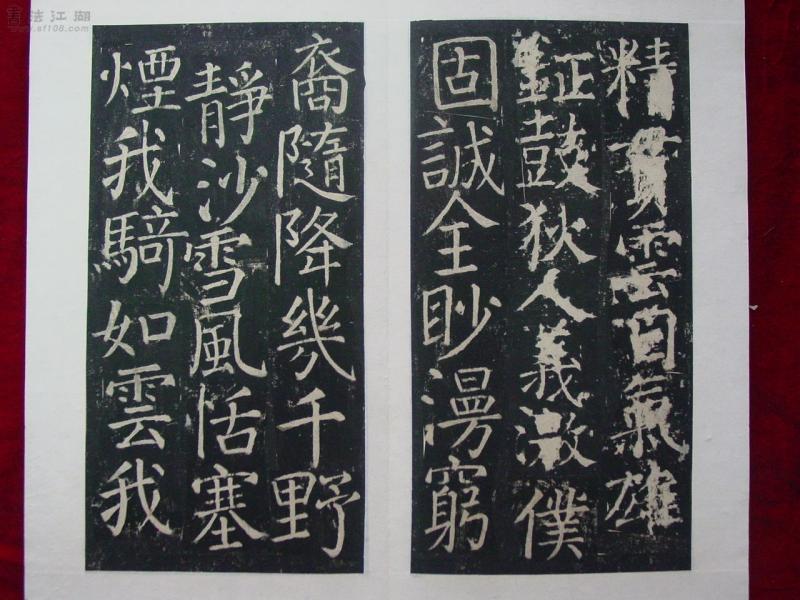 書法江湖
www.sf108.com
精貫雲氣雄
鉦鼓狄人義激僕
固誠全眇漫窮
裔隨降幾千野
靜沙雪風恬塞
煙我騎如雲我